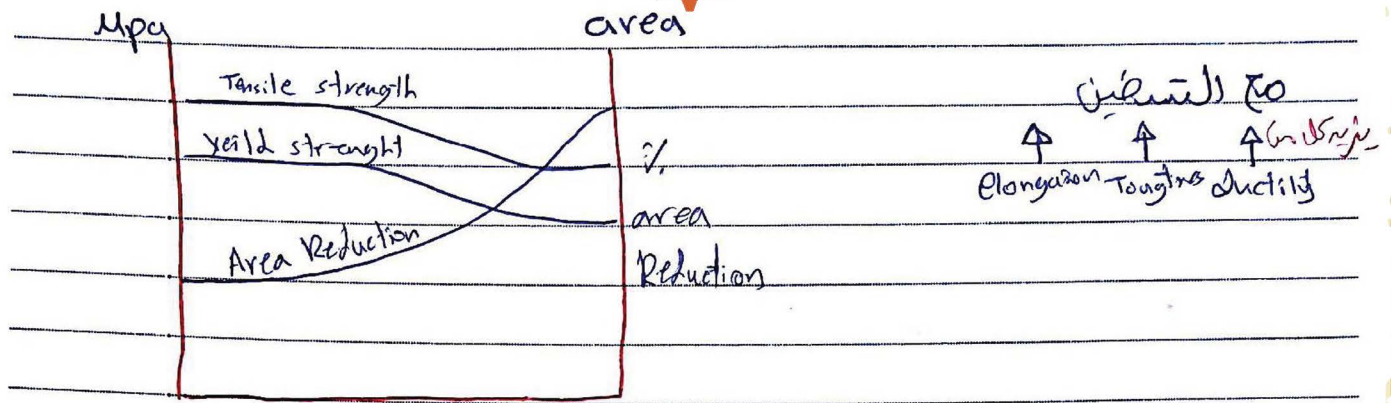 Mpa
area
Tensile strength
Yeild strenght
Area Reduction
%
area
Reduction
مع التسخين
يزيد كل من
elongaion Tougtnes ductility